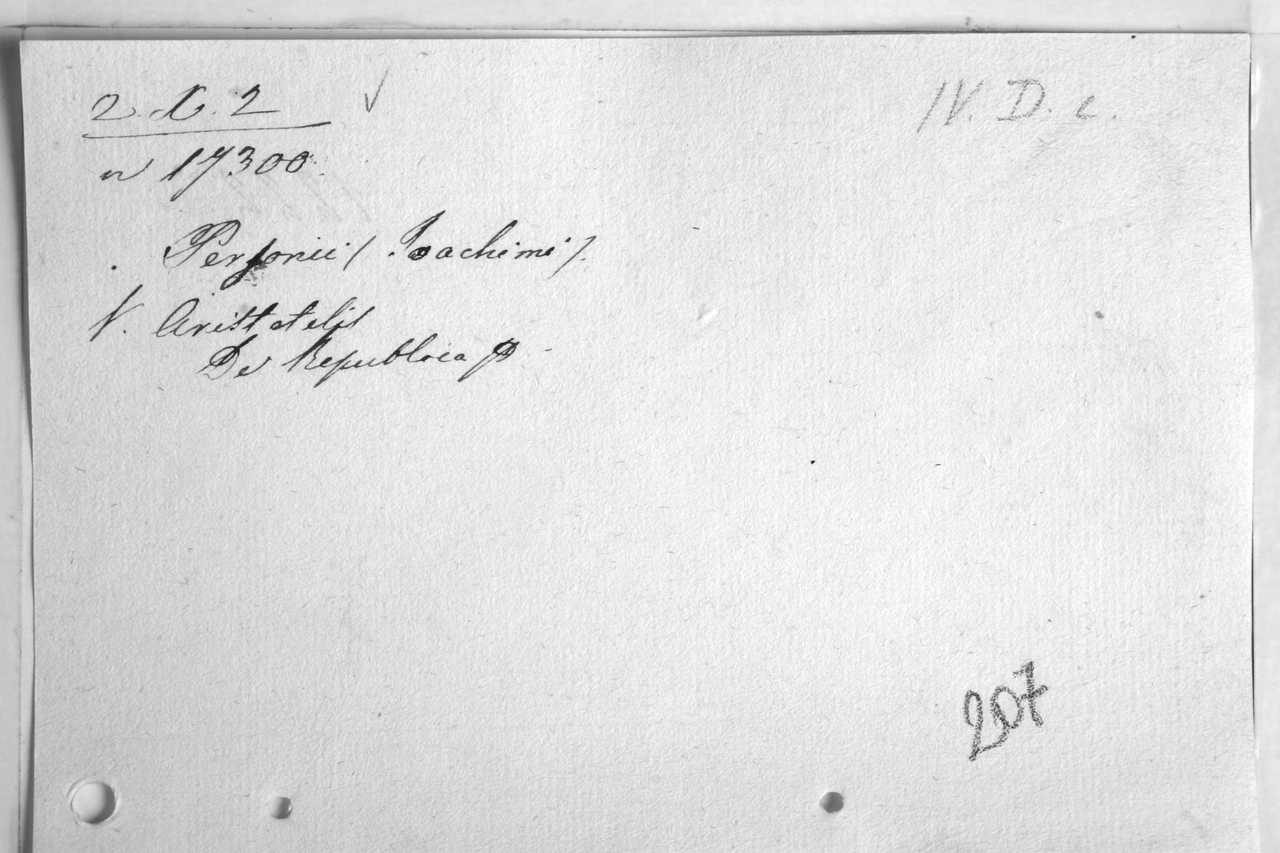 2. X. 2
IV. D. c.
n 17300.
Personii (Joachimi).
V. Aristotelis
De Republica
207